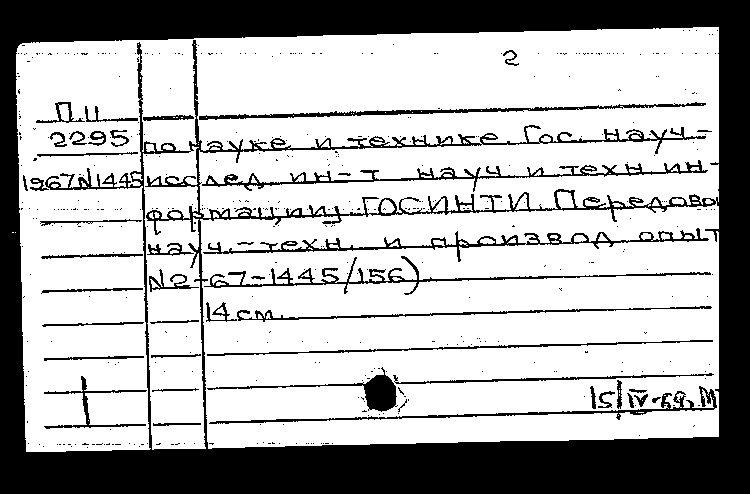 2
П.11
2295 по науке и технике. Гос. науч-
1967N1445 исслед. ин-т науч. и техн. ин-
формации). ГОСИНТИ. Передовой
науч.-техн. и производ. опыт
N2-67-1445/156)
14 см.
15/IV-69.